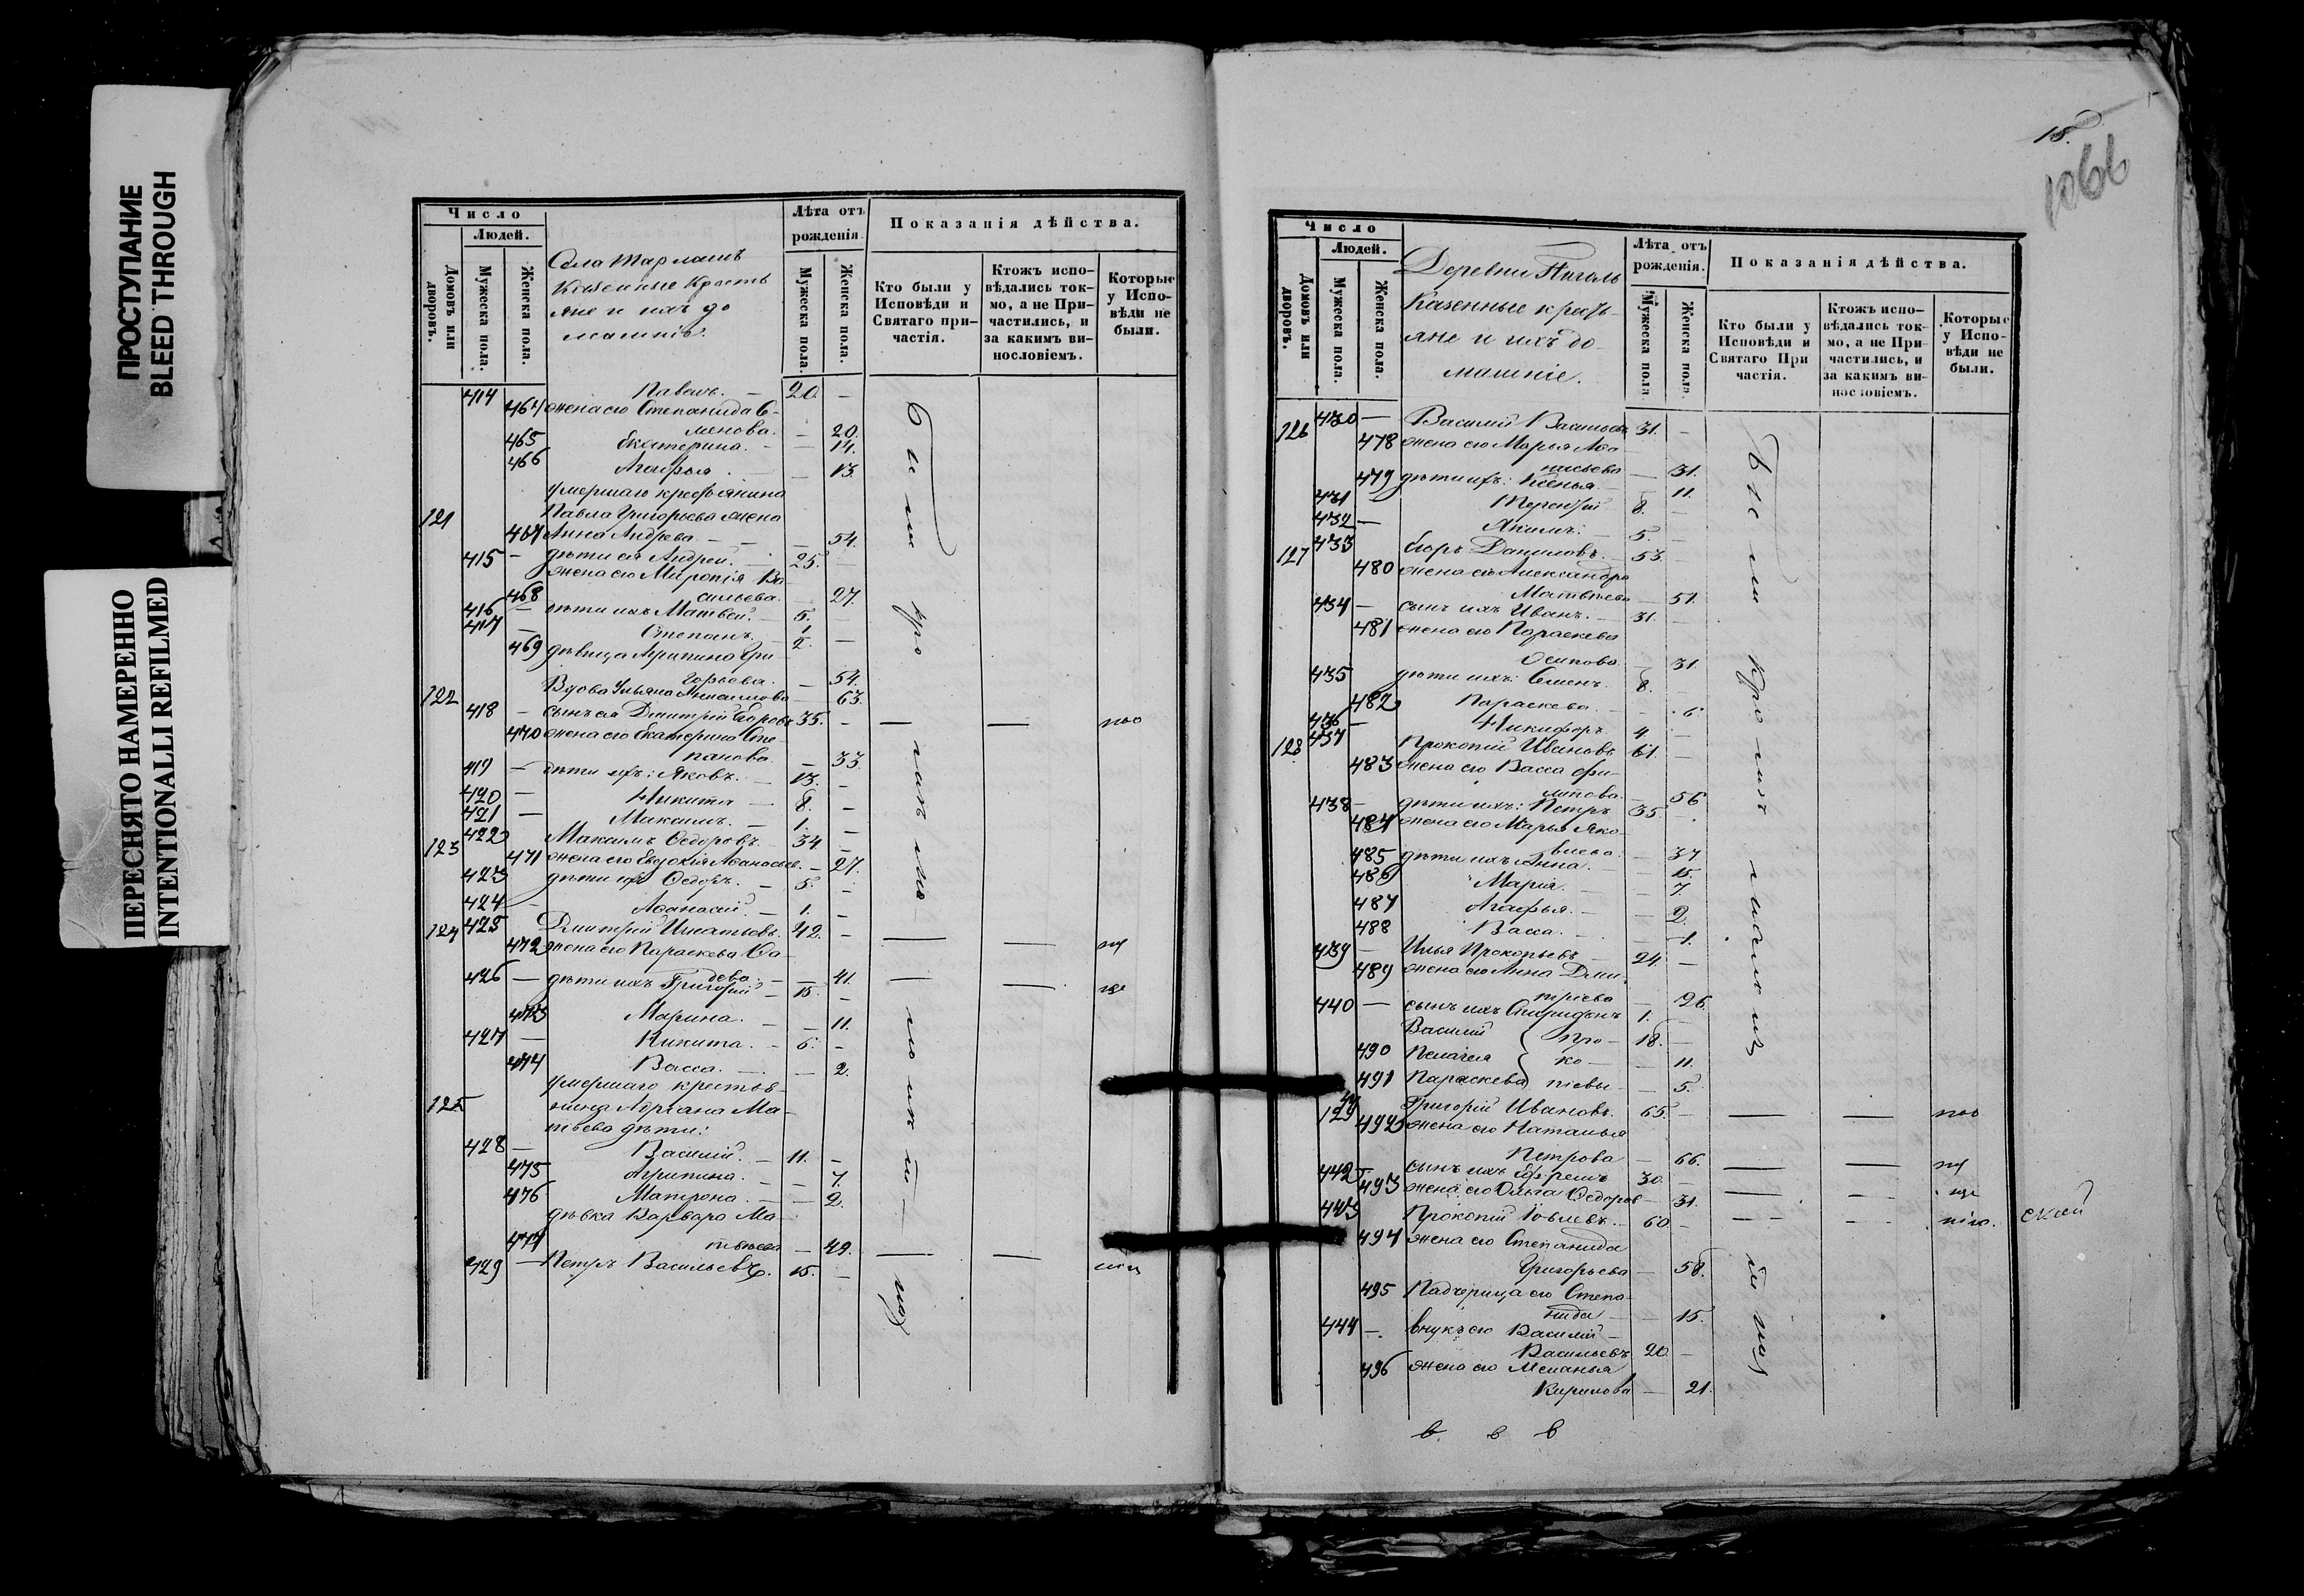 ПРОСТУПАНИЕ
BLEED THROUGH
ПЕРЕСНЯТО НАМЕРЕННО
INTENTIONALLI REFILMED
Число
Людей.
Домовъ или дворовъ.
Мужеска пола.
Женска пола.
Села
Казенные крестьяне и ихъ домашніе.
Лѣта отъ рожденія.
Мужеска пола.
Женска пола.
Показанія дѣйства.
Кто были у Исповѣди и Святаго причастія.
Ктожъ исповѣдались токмо, а не Причастились, и за какимъ винословіемъ.
Которые у Исповѣди не были.
414 Павелъ. — 20. —
464 жена его Степанида Семенова. — 20.
465 Екатерина. — 14.
466 Агафья. — 13.
умершаго крестьянина
121 Павла Григорьева жена
467 Анна Андреева — 54.
415 — дѣти ея Андрей. 25. —
жена его Миропія Ва-
468 сильева. — 27.
416 — дѣти ихъ Матвей. 5. —
417 — Степанъ. 1/2. —
469 дѣвица Агрипина Гри-
горьева. — 54.
122 Вдова Ульяна — 63.
418 — сынъ ея Дмитрій Егоровъ 35. —
470 жена его Екатерина Сте-
панова. — 33.
419 — дѣти ихъ: Яковъ. 13. —
420 — Никита 8. —
421 — Максимъ. 1. —
123 422 Максимъ Ѳедоровъ. 34 —
471 жена его Евдокія Аѳанасьев. — 27.
423 дѣти ихъ Ѳедоръ. 5. —
424 — Аѳанасій. 1. —
124 425 Дмитрій Игнатьевъ. 42. —
472 жена его Параскева Са-
вева. — 41.
426 — дѣти ихъ Григорій 15. —
473 Марина. — 11.
427 — Никита. 6. —
474 Васса. — 2.
умершаго крестья-
125 нина Адріана Ма-
тѣева дѣти:
428 — Василій. 11. —
475 Агрипина. — 7.
476 Матрона. — 2.
дѣвка Варвара Ма-
477 твѣева — 49.
429 — Петръ Васильевъ. 15. —
15.
1066
Число
Людей.
Домовъ или дворовъ.
Мужеска пола.
Женска пола.
Деревни
Казенные крестьяне и ихъ домашніе.
Лѣта отъ рожденія.
Мужеска пола
Женска пола
Показанія дѣйства.
Кто были у Исповѣди и Святаго При частія.
Ктожъ исповѣдались токмо, а не Причастились, и за какимъ винословіемъ.
Которые у Исповѣди не были.
126 430 — Василій Васильевъ 31. —
478 жена его Марья Аѳа-
насьева — 31.
479 дѣти ихъ: Ксенья. — 11.
431 Терентій 8. —
432 — Якимъ. 5. —
127 433 Егоръ Даниловъ. 53. —
480 жена его Александра
Матвѣева — 51.
434 — сынъ ихъ Иванъ. 31. —
481 жена его Параскева
Осипова. — 31.
435 дѣти ихъ: Семенъ. 8. —
482 Параскева. — 6.
436 — Никифоръ. 4. —
128 437 Прокопій Ивановъ 61. —
483 жена его Васса Фи-
липова. — 56
438 — дѣти ихъ: Петръ 35. —
484 жена его Марья Яко-
влева. — 37
485 дѣти ихъ Анна. — 15.
486 Марія. — 7.
487 Агафья. — 2.
488 Васса. — 1.
439 — Илья Прокопьевъ 24. —
489 жена его Анна Дми-
тріева — 26.
440 — сынъ ихъ Спиридонъ 1. —
Василій } Про- 18. —
490 Пелагея } ко- — 11.
491 Параскева } піевы — 5.
129 Григорій Ивановъ. 65. —
492 жена его Наталья
Петрова — 66.
442 — сынъ ихъ Ефремъ 30. —
493 жена его Ольга Ѳедоров — 31.
443 Прокопій Іовлевъ. 60 —
494 жена его Степанида
Григорьева — 58.
495 Падчерица его Степа-
нида — 15.
444 — внукъ его Василій
Васильевъ 20. —
496 жена его Меланья
Кирилова — 21.
в в в